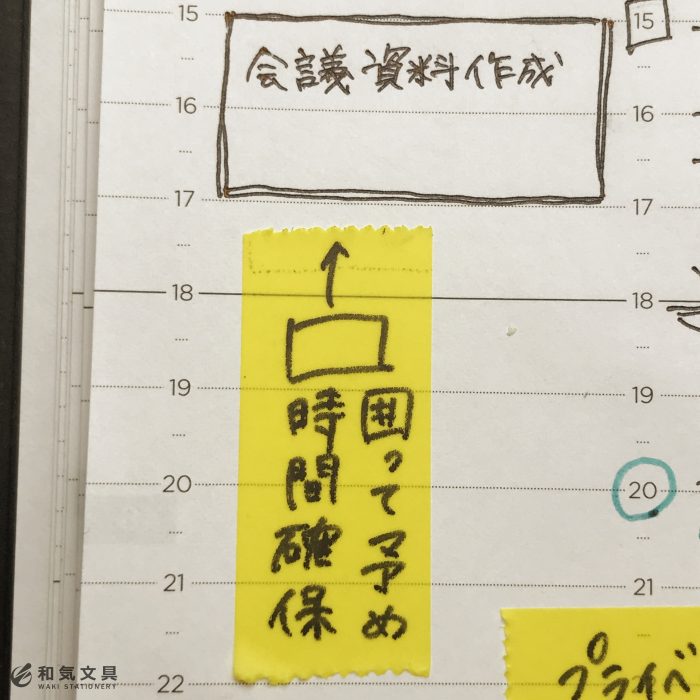 15
会議資料作成
16
17
18
19
20
21
22
15
16
17
18
19
20
21
囲って予め
時間確保
プライベ
和気文具
WAKI STATIONERY